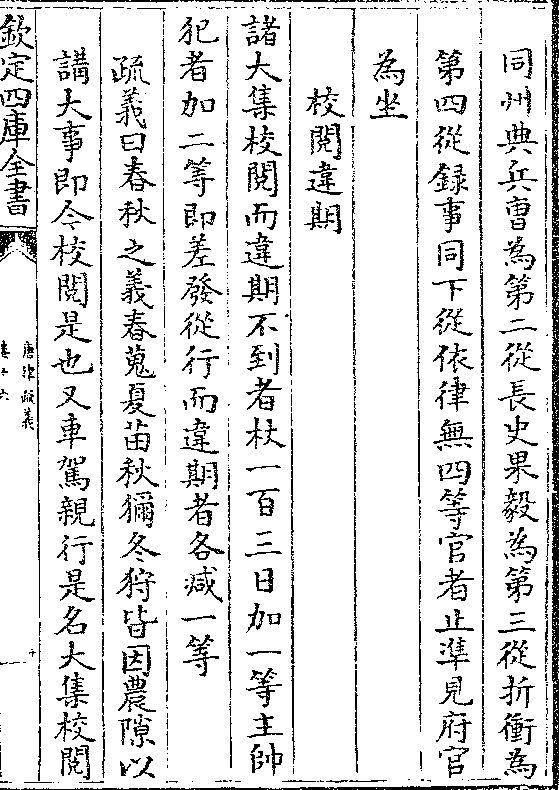 同州典兵曹為第二從長史果毅為第三從折衝為
第四從録事同下從依律無四等官者止準見府官
為坐
校閱違期
諸大集校閱而違期不到者杖一百三日加一等主帥
犯者加二等即差發從行而違期者各減一等
疏義曰春秋之義春蒐夏苗秋獮冬狩皆因農隙以
講大事即今校閱是也又車駕親行是名大集校閱
欽定四庫全書
唐律疏義
卷十六